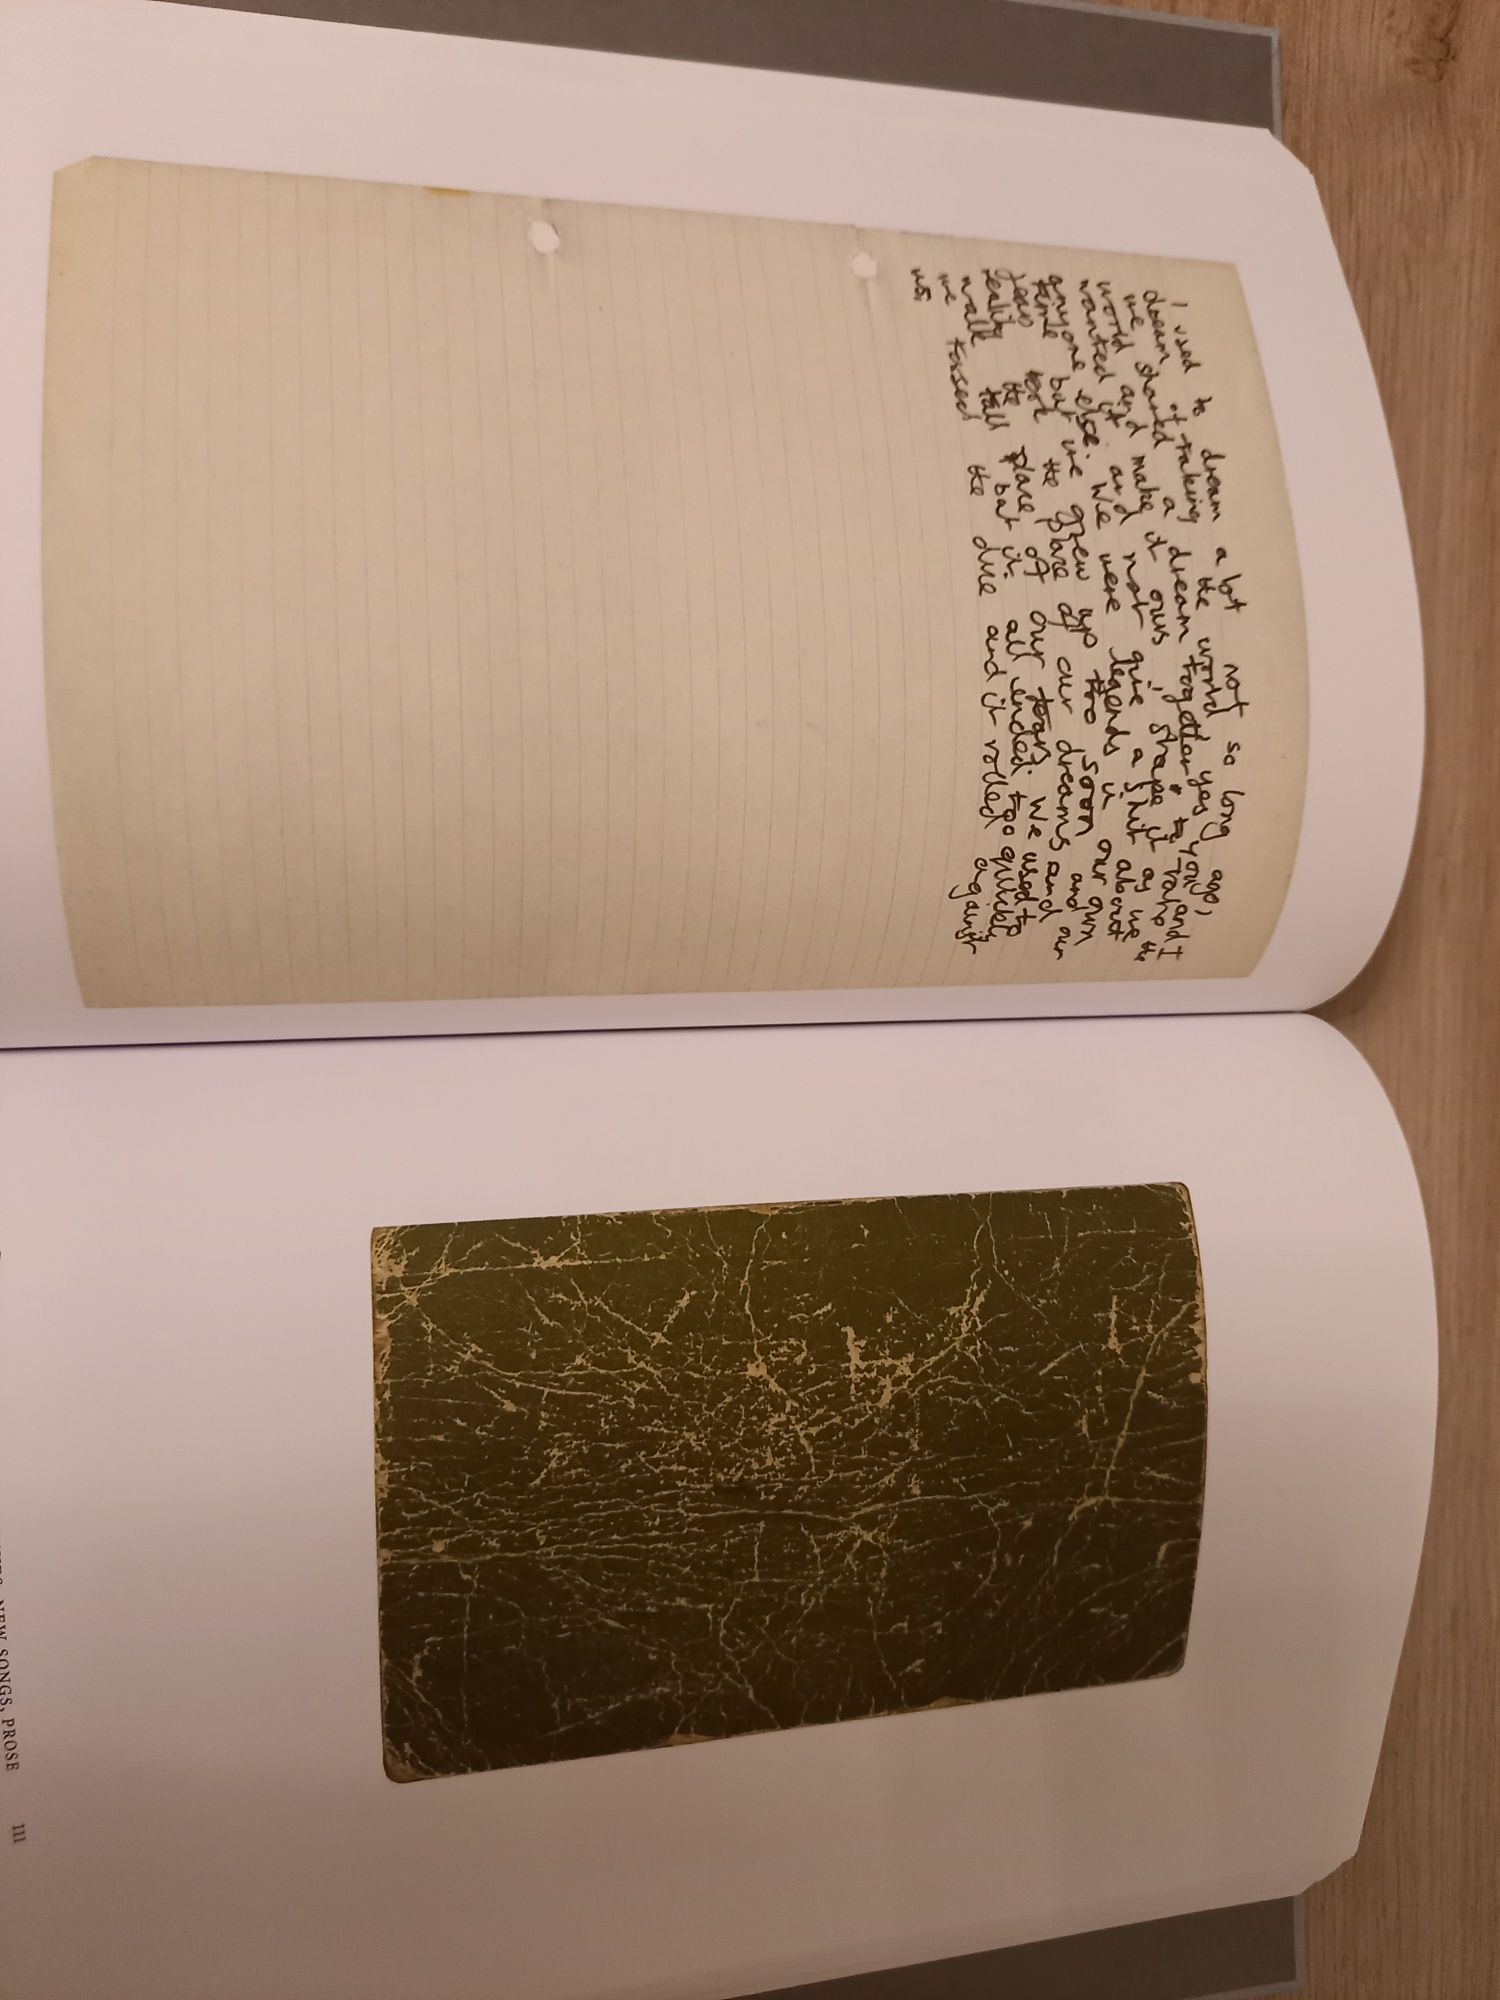 I used to dream a lot not so long ago,
dream of taking the world yes you and I
we shared a dream together, to take the
world and make it ours, shape it as we
wanted it and not give a shit about
anyone else. We were legends in our own
time but we grew up too soon and
took the place of our dreams and our
reality the place of our. We used to
walk tall but it all ended too quickly
we tossed the die and it rolled against
us.
NEW SONGS, PROSE 111